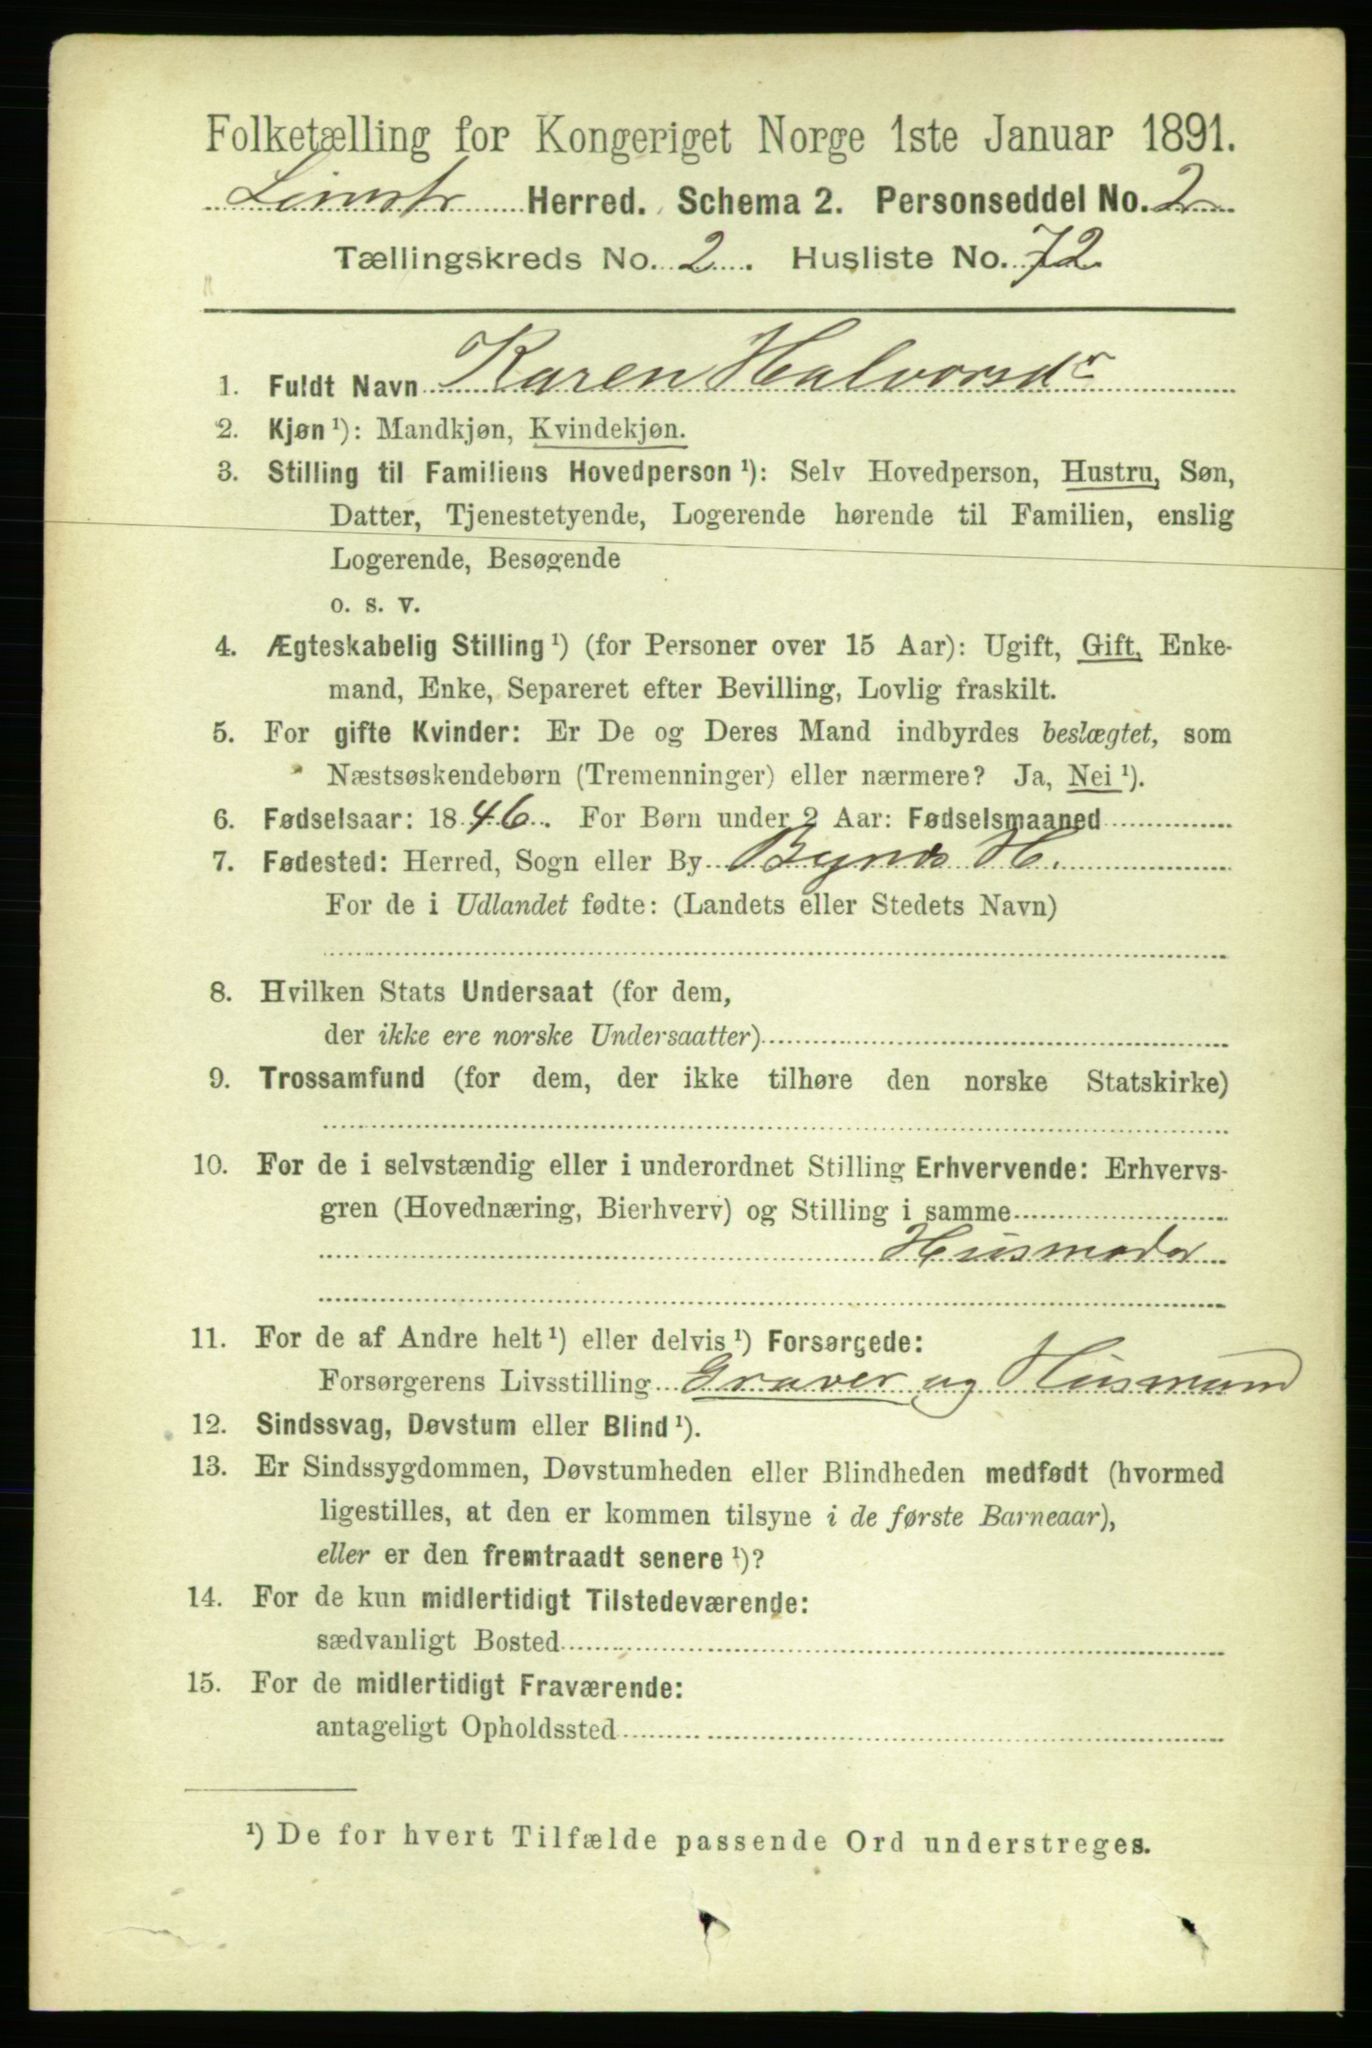 Folketælling for Kongeriget Norge 1ste Januar 1891.
Herred. Schema 2. Personseddel No. 2
Tællingskreds No. 2. Husliste No. 72
1. Fuldt Navn Karen Halvorsdr
2. Kjøn ¹): Mandkjøn, Kvindekjøn.
3. Stilling til Familiens Hovedperson ¹): Selv Hovedperson, Hustru, Søn,
Datter, Tjenestetyende, Logerende hørende til Familien, enslig
Logerende, Besøgende
o. s. v.
4. Ægteskabelig Stilling ¹) (for Personer over 15 Aar): Ugift, Gift, Enke-
mand, Enke, Separeret efter Bevilling, Lovlig fraskilt.
5. For gifte Kvinder: Er De og Deres Mand indbyrdes beslægtet, som
Næstsøskendebørn (Tremenninger) eller nærmere? Ja, Nei ¹).
6. Fødselsaar: 1846. For Børn under 2 Aar: Fødselsmaaned
7. Fødested: Herred, Sogn eller By Bynes H.
For de i Udlandet fødte: (Landets eller Stedets Navn)
8. Hvilken Stats Undersaat (for dem,
der ikke ere norske Undersaatter)
9. Trossamfund (for dem, der ikke tilhøre den norske Statskirke)
10. For de i selvstændig eller i underordnet Stilling Erhvervende: Erhvervs-
gren (Hovednæring, Bierhverv) og Stilling i samme
Husmoder
11. For de af Andre helt ¹) eller delvis ¹) Forsørgede:
Forsørgerens Livsstilling Graver og Husmand
12. Sindssvag, Døvstum eller Blind ¹).
13. Er Sindssygdommen, Døvstumheden eller Blindheden medfødt (hvormed
ligestilles, at den er kommen tilsyne i de første Barneaar),
eller er den fremtraadt senere ¹)?
14. For de kun midlertidigt Tilstedeværende:
sædvanligt Bosted
15. For de midlertidigt Fraværende:
antageligt Opholdssted
¹) De for hvert Tilfælde passende Ord understreges.